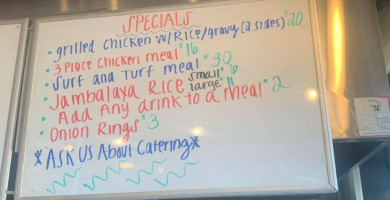 SPECIALS
• grilled chicken w/Rice/gravy (2 sides) $20
• 3 Piece chicken meal $16
• Surf and Turf meal $30
• Jambalaya Rice small $6
large $11
• Add Any drink to a Meal $2
• Onion Rings $3
*ASK US About Catering*